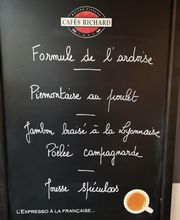 CAFÉS RICHARD
Formule de l'ardoise
Piemontaise au poulet
Jambon braisé à la Lyonnaise
Poêlée campagnarde
Mousse Spéculoos
L'EXPRESSO À LA FRANÇAISE...